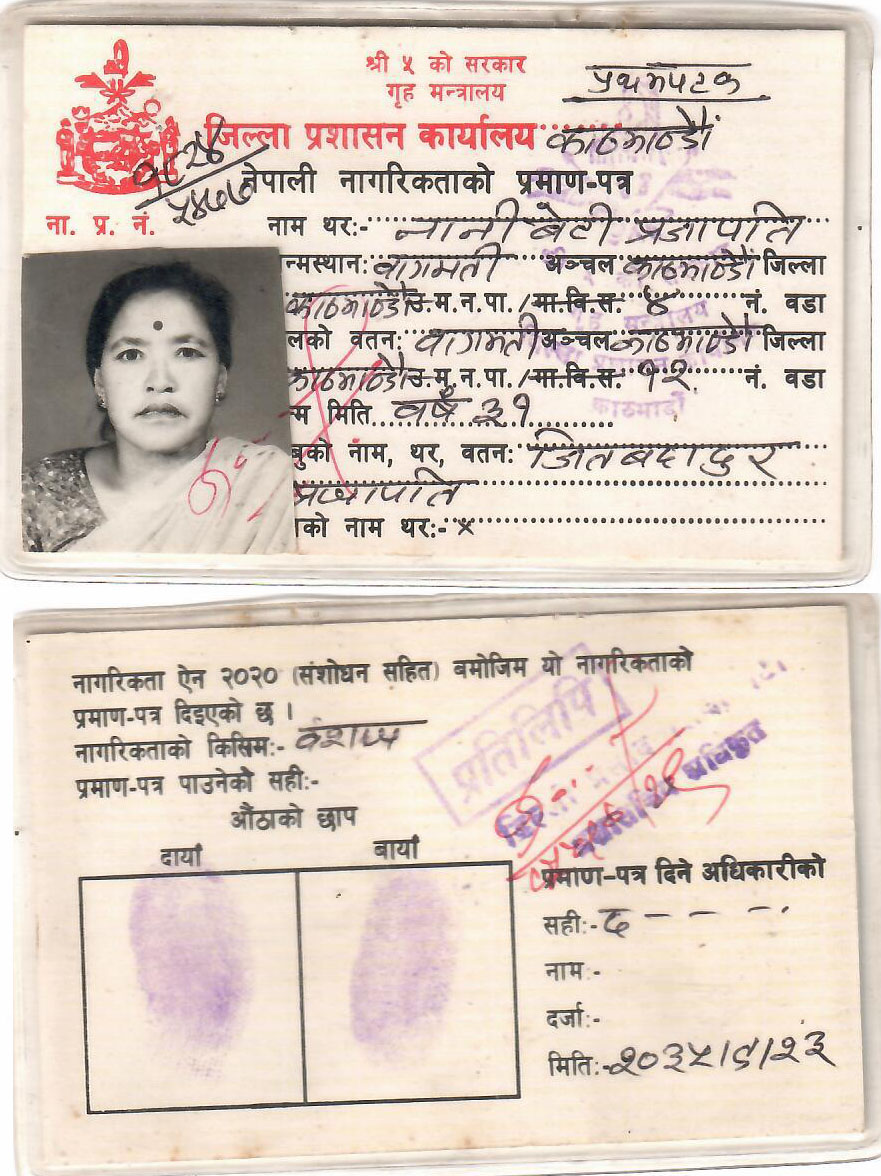 श्री ५ को सरकार
गृह मन्त्रालय
प्रथमपटक
जिल्ला प्रशासन कार्यालय काठमाण्डौं
नेपाली नागरिकताको प्रमाण-पत्र
ना. प्र. नं.
नाम थर:- नानीबेटी प्रजापति
न्मस्थान: वागमती अञ्चल काठमाण्डौ जिल्ला
काठमाण्डौ उ.म.न.पा./गा.वि.स. ४ नं. वडा
लको वतन: वागमती अञ्चल काठमाण्डौ जिल्ला
काठमाण्डौ उ.म.न.पा./गा.वि.स. १२ नं. वडा
म मिति वर्ष ३१
बुको नाम, थर, वतन: जितबहादुर
प्रजापति
को नाम थर:- x
गृह मन्त्रालय
काठमाडौं
नागरिकता ऐन २०२० (संशोधन सहित) बमोजिम यो नागरिकताको
प्रमाण-पत्र दिइएको छ ।
नागरिकताको किसिम:- वंशज
प्रमाण-पत्र पाउनेको सही:-
औंठाको छाप
दायाँ बायाँ
प्रतिलिपि
प्रमाण-पत्र दिने अधिकारीको
सही:- द - - -
नाम:-
दर्जा:-
मिति:- २०३५।८।२३